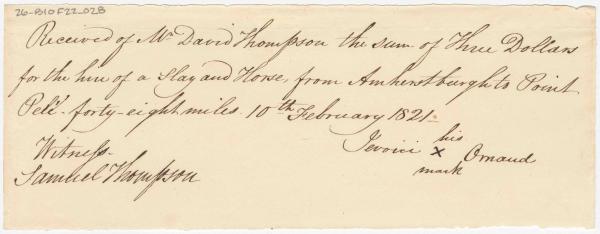 26-B10F22_02B
Received of Mr. David Thompson the sum of Three Dollars
for the hire of a Slay and Horse, from Amherstburgh to Point
Pelé - forty-eight miles. 10th February 1821.
Witness. his
Samuel Thompson x Ornaud
mark